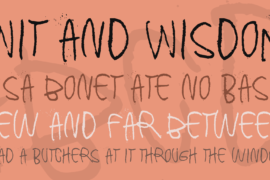 NIT AND WISDOM
SA BONET ATE NO BAS
EW AND FAR BETWEE
AD A BUTCHERS AT IT THROUGH THE WINDO